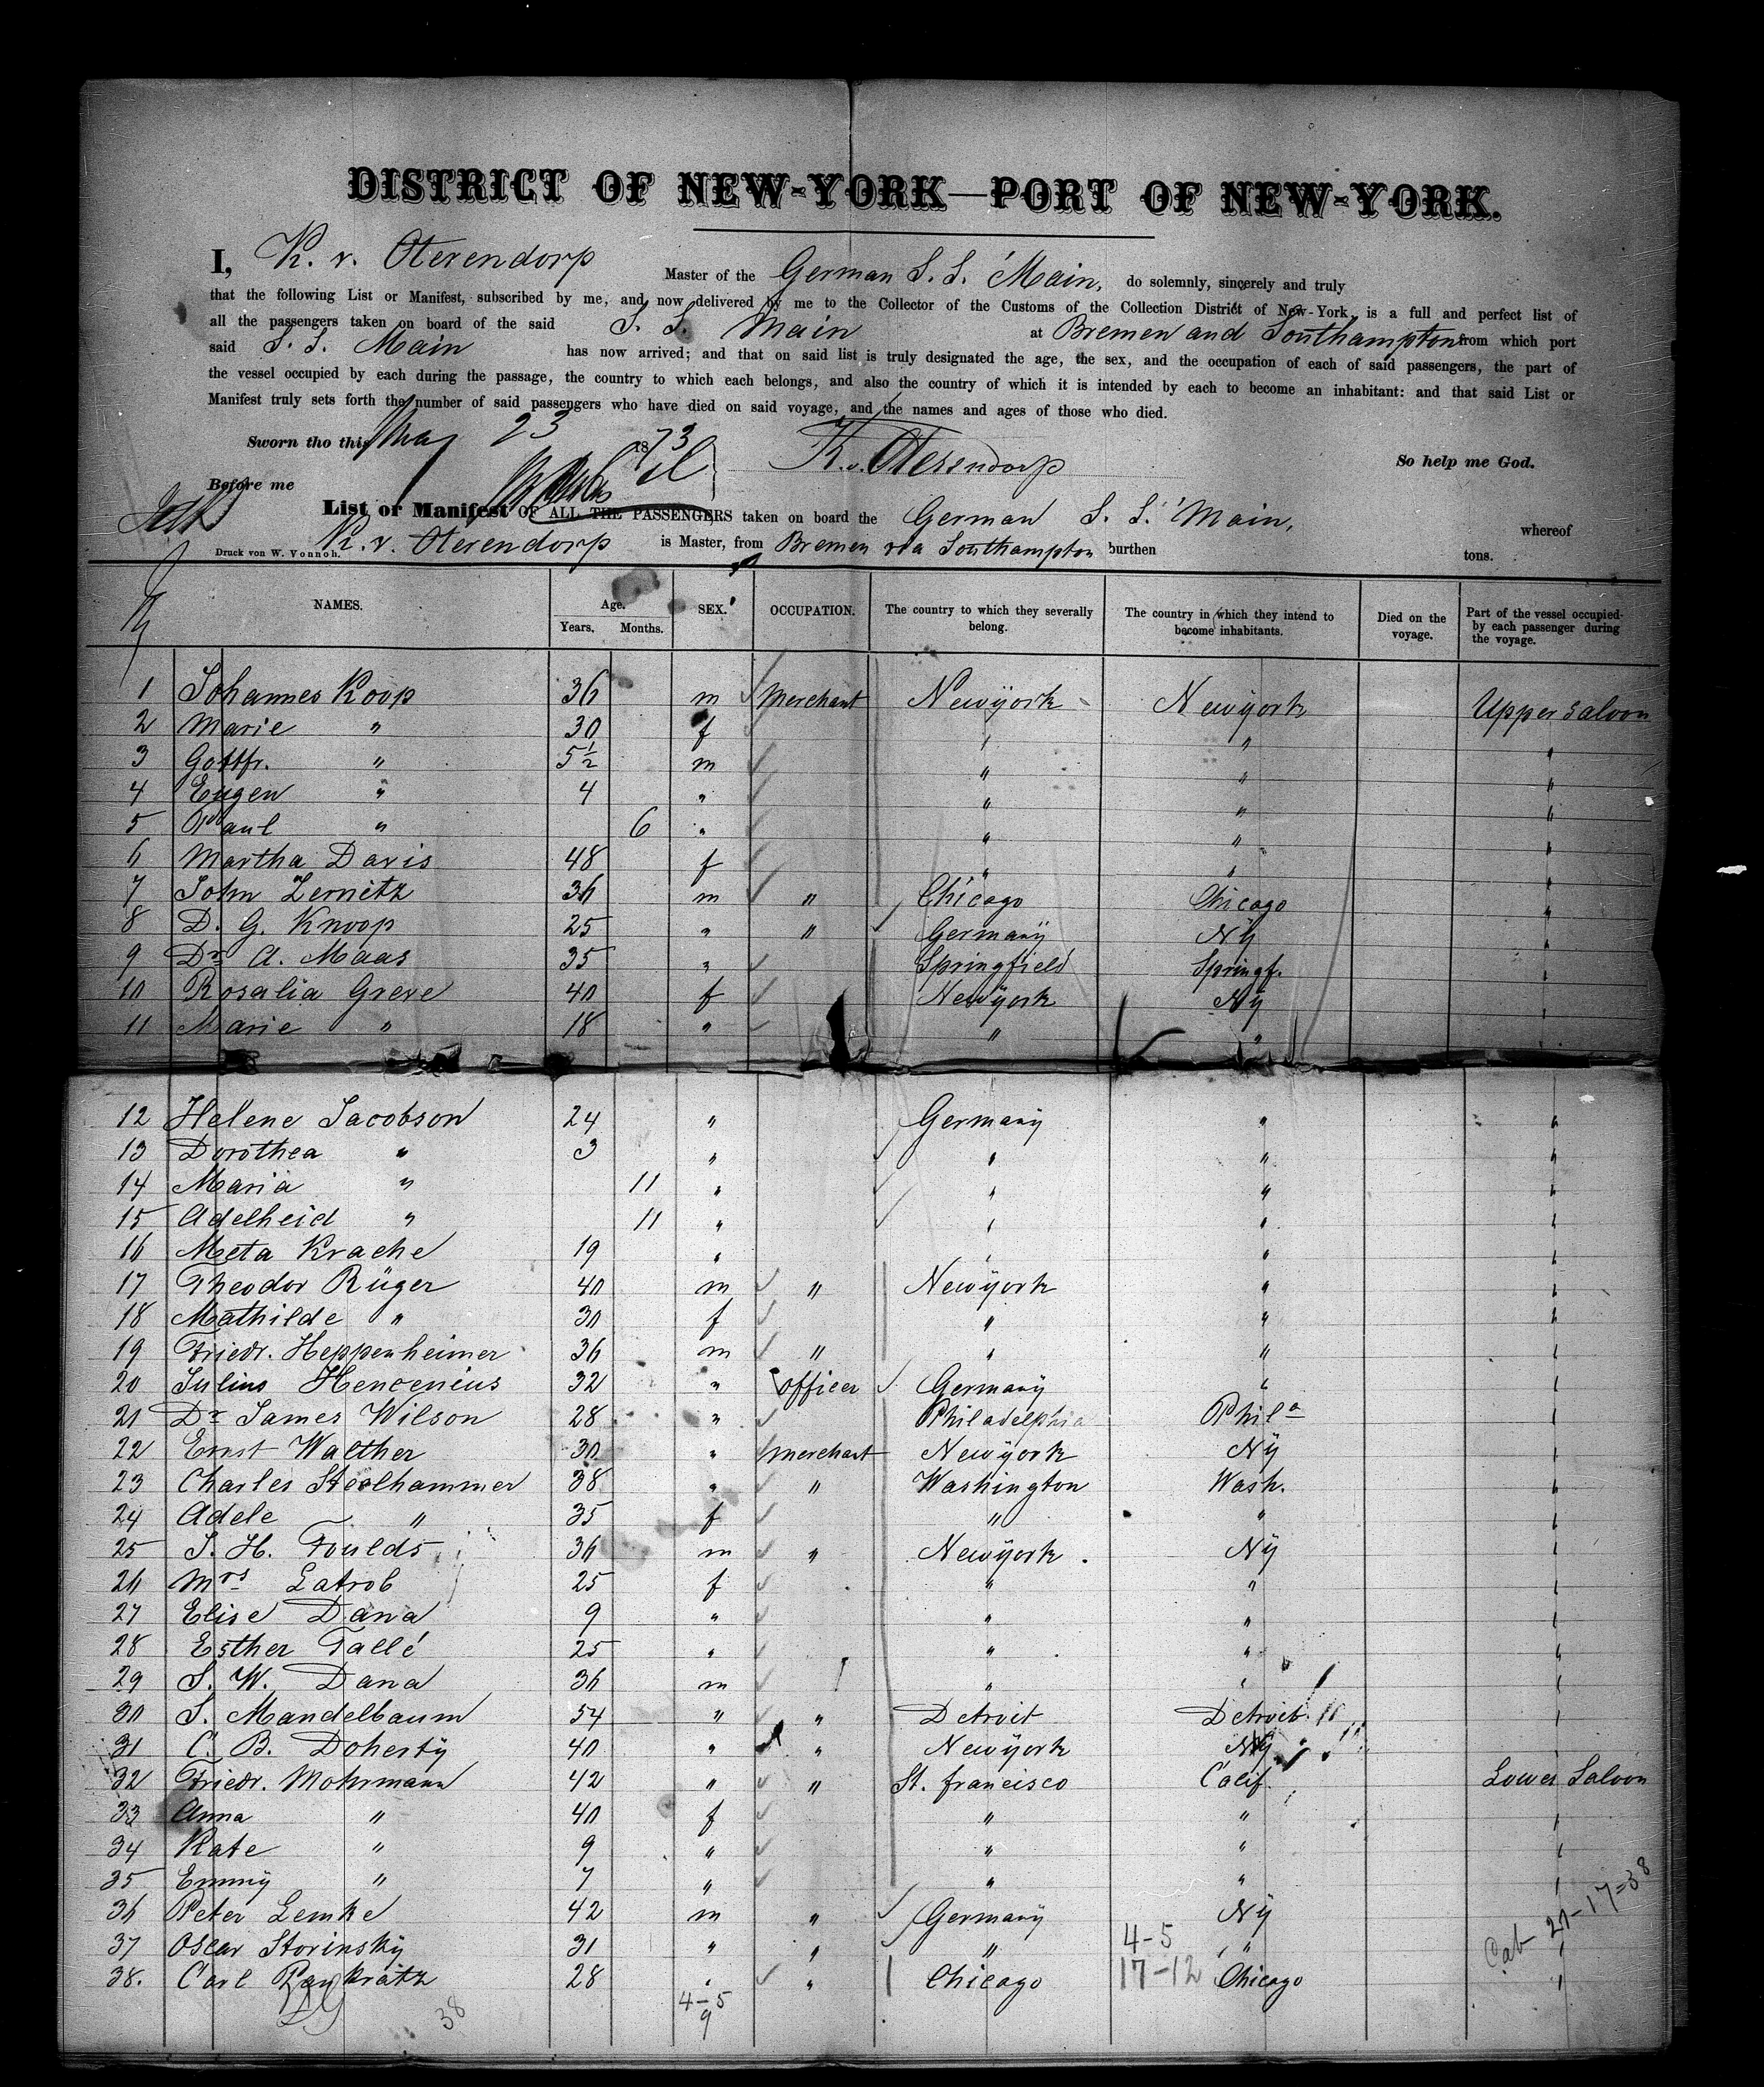 DISTRICT OF NEW-YORK—PORT OF NEW-YORK.
I, K. v. Oterendorp Master of the German S. S. Main, do solemnly, sincerely and truly
that the following List or Manifest, subscribed by me, and now delivered by me to the Collector of the Customs of the Collection District of New-York, is a full and perfect list of
all the passengers taken on board of the said S. S. Main at Bremen and Southampton from which port
said S. S. Main has now arrived; and that on said list is truly designated the age, the sex, and the occupation of each of said passengers, the part of
the vessel occupied by each during the passage, the country to which each belongs, and also the country of which it is intended by each to become an inhabitant: and that said List or
Manifest truly sets forth the number of said passengers who have died on said voyage, and the names and ages of those who died.
Sworn tho this May 23 1873 K. v. Oterendorp So help me God.
Before me
List or Manifest OF ALL THE PASSENGERS taken on board the German S. S. Main, whereof
K. v. Oterendorp is Master, from Bremen via Southampton burthen tons.
Druck von W. Vonnoh.
NAMES. Age. Years. Months. SEX. OCCUPATION. The country to which they severally belong. The country in which they intend to become inhabitants. Died on the voyage. Part of the vessel occupied by each passenger during the voyage.
1 Johannes Koop 36 m Merchant Newÿork Newÿork Upper Saloon
2 Marie " 30 f " " "
3 Gottfr. " 5½ m " " "
4 Eugen " 4 " " " "
5 Paul " 6 " " " "
6 Martha Davis 48 f " " "
7 John Zernitz 36 m " Chicago Chicago "
8 D. G. Knoop 25 " " Germanÿ Nÿ "
9 Dr A. Maas 35 " Springfield Springf. "
10 Rosalia Greve 40 f Newÿork Nÿ "
11 Marie " 18 " " " "
12 Helene Jacobson 24 " Germanÿ " "
13 Dorothea " 3 " " " "
14 Maria " 11 " " " "
15 Adelheid " 11 " " " "
16 Meta Krache 19 " " " "
17 Theodor Rüger 40 m " Newÿork " "
18 Mathilde " 30 f " " "
19 Friedr. Heppenheimer 36 m " " " "
20 Julius 32 " Officer Germanÿ " "
21 Dr James Wilson 28 " Philadelphia Phila "
22 Ernst Walther 30 " Merchant Newÿork Nÿ "
23 Charles Steelhammer 38 " " Washington Wash. "
24 Adele " 35 f " " "
25 J. H. Foulds 36 m " Newÿork Nÿ "
26 Mrs Latrob 25 f " " "
27 Elise Dana 9 " " " "
28 Esther Tallé 25 " " " "
29 S. W. Dana 36 m " " "
30 S. Mandelbaum 54 " " Detroit Detroit "
31 C. B. Dohertÿ 40 " " Newÿork Nÿ "
32 Friedr. Mohrmann 42 " " St. francisco Calif. Lower Saloon
33 Anna " 40 f " " "
34 Kate " 9 " " " "
35 Emmÿ " 7 " " " "
36 Peter Lemke 42 m " Germanÿ Nÿ "
37 Oscar Storinskÿ 31 " " " 4-5 " "
38. Carl Pankratz 28 " " Chicago 17-12 Chicago "
Cab 21-17=38
4-5
9
38